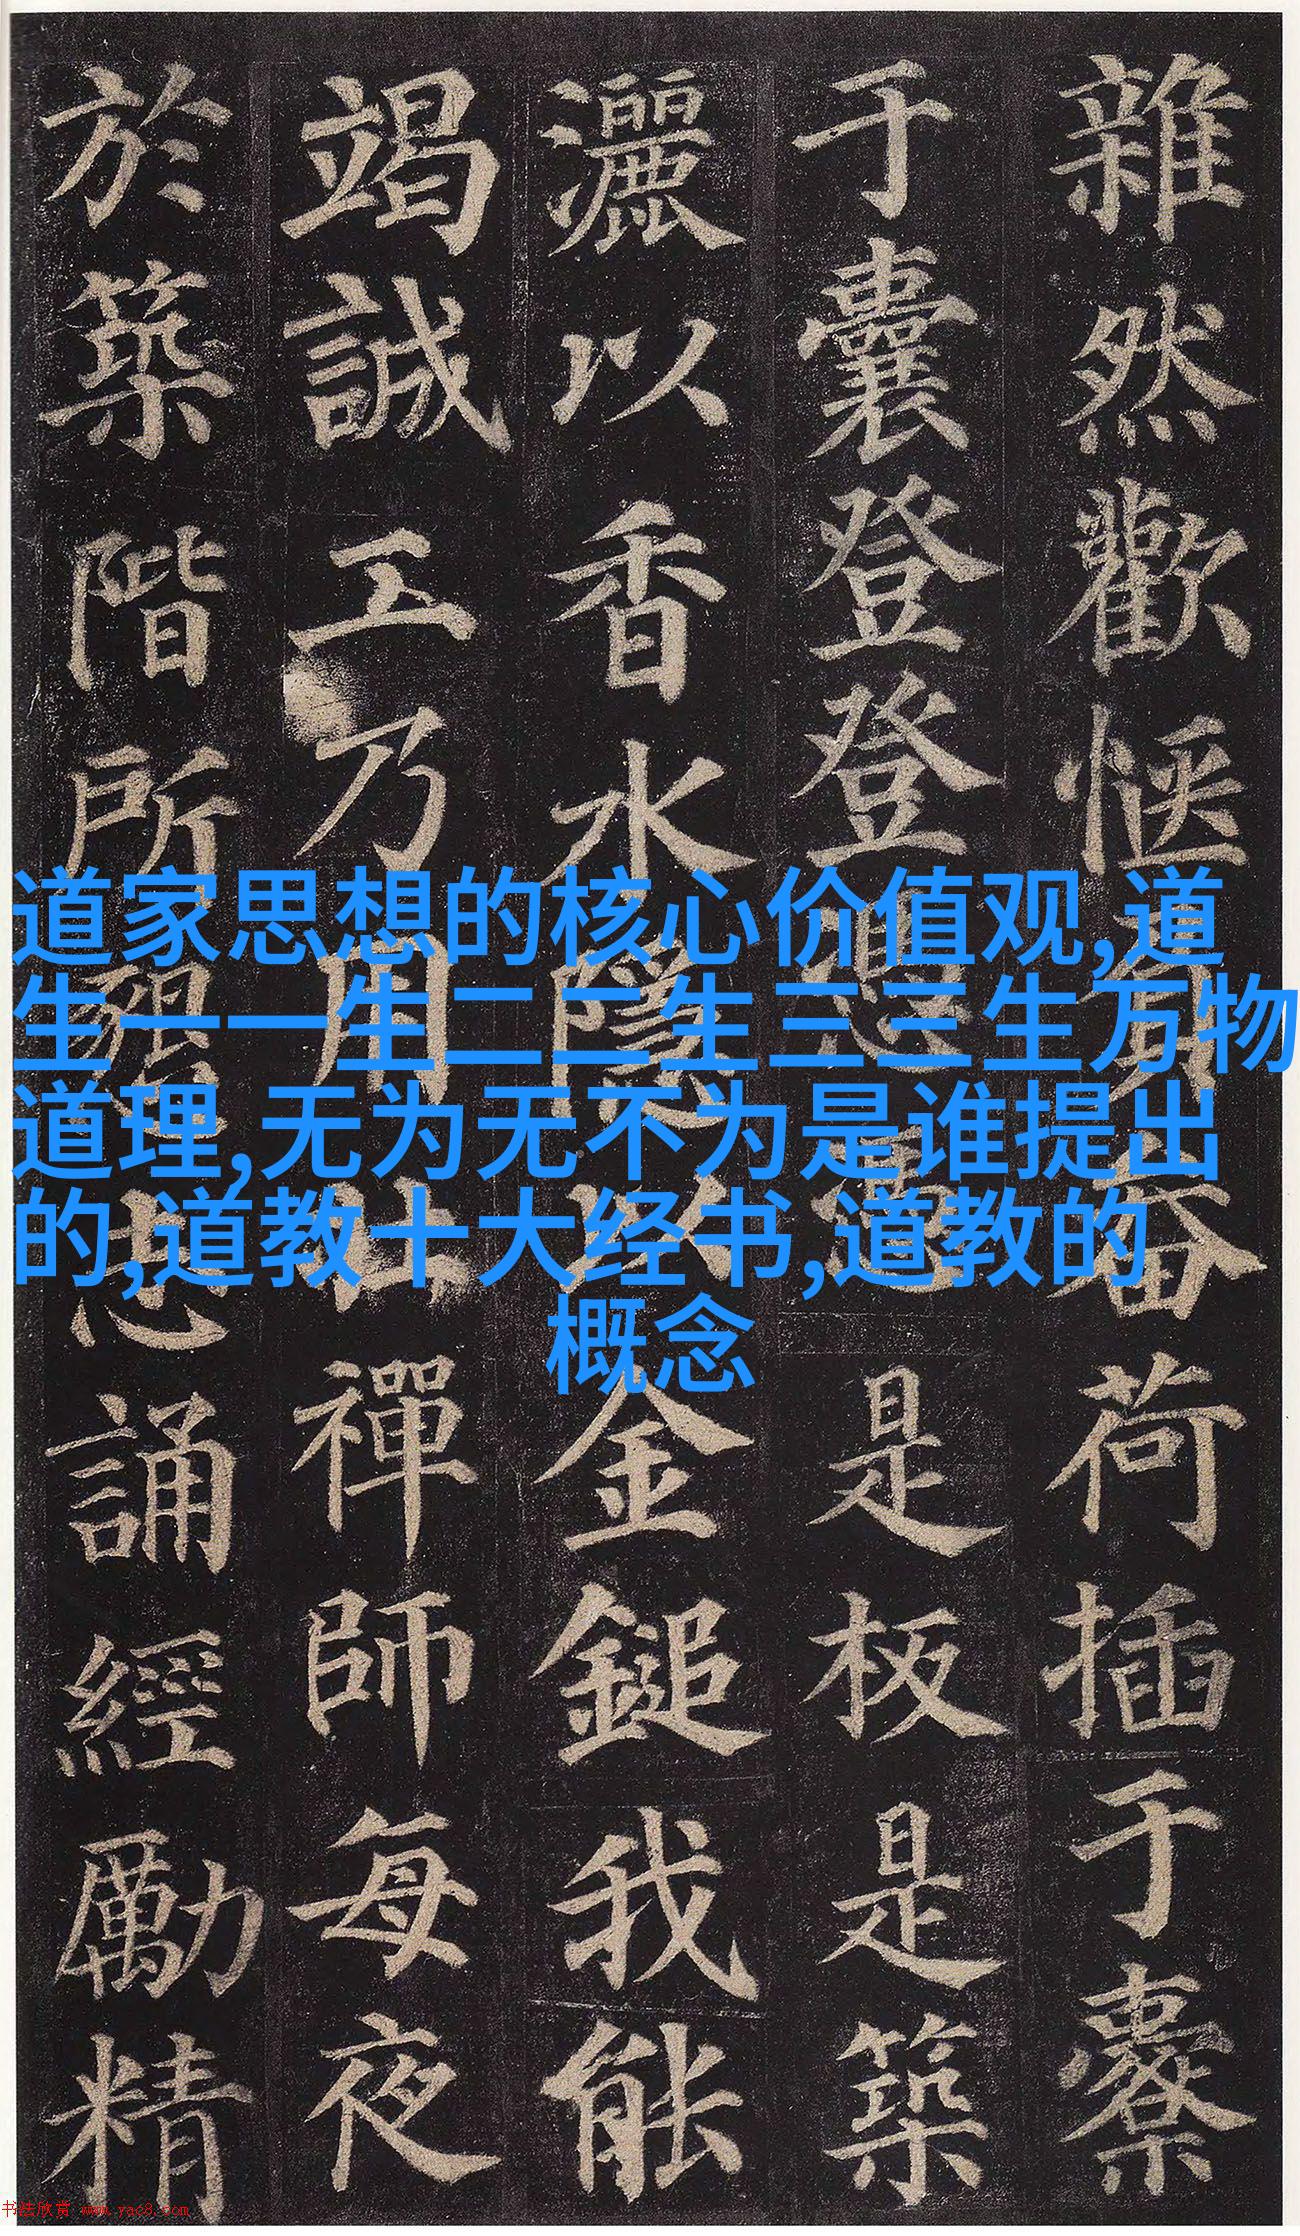 雜然歡愜負畚荷插于橐
于囊登登憑憑是板是築
灑以香水隱以金鎚我能
竭誠工乃用壯禪師每夜
於築階所懇志誦經勵精
道家思想的核心价值观,道
生一一生二二生三三生万物
道理,无为无不为是谁提出
的,道教十大经书,道教的
概念
书法欣赏 www.yac8.com